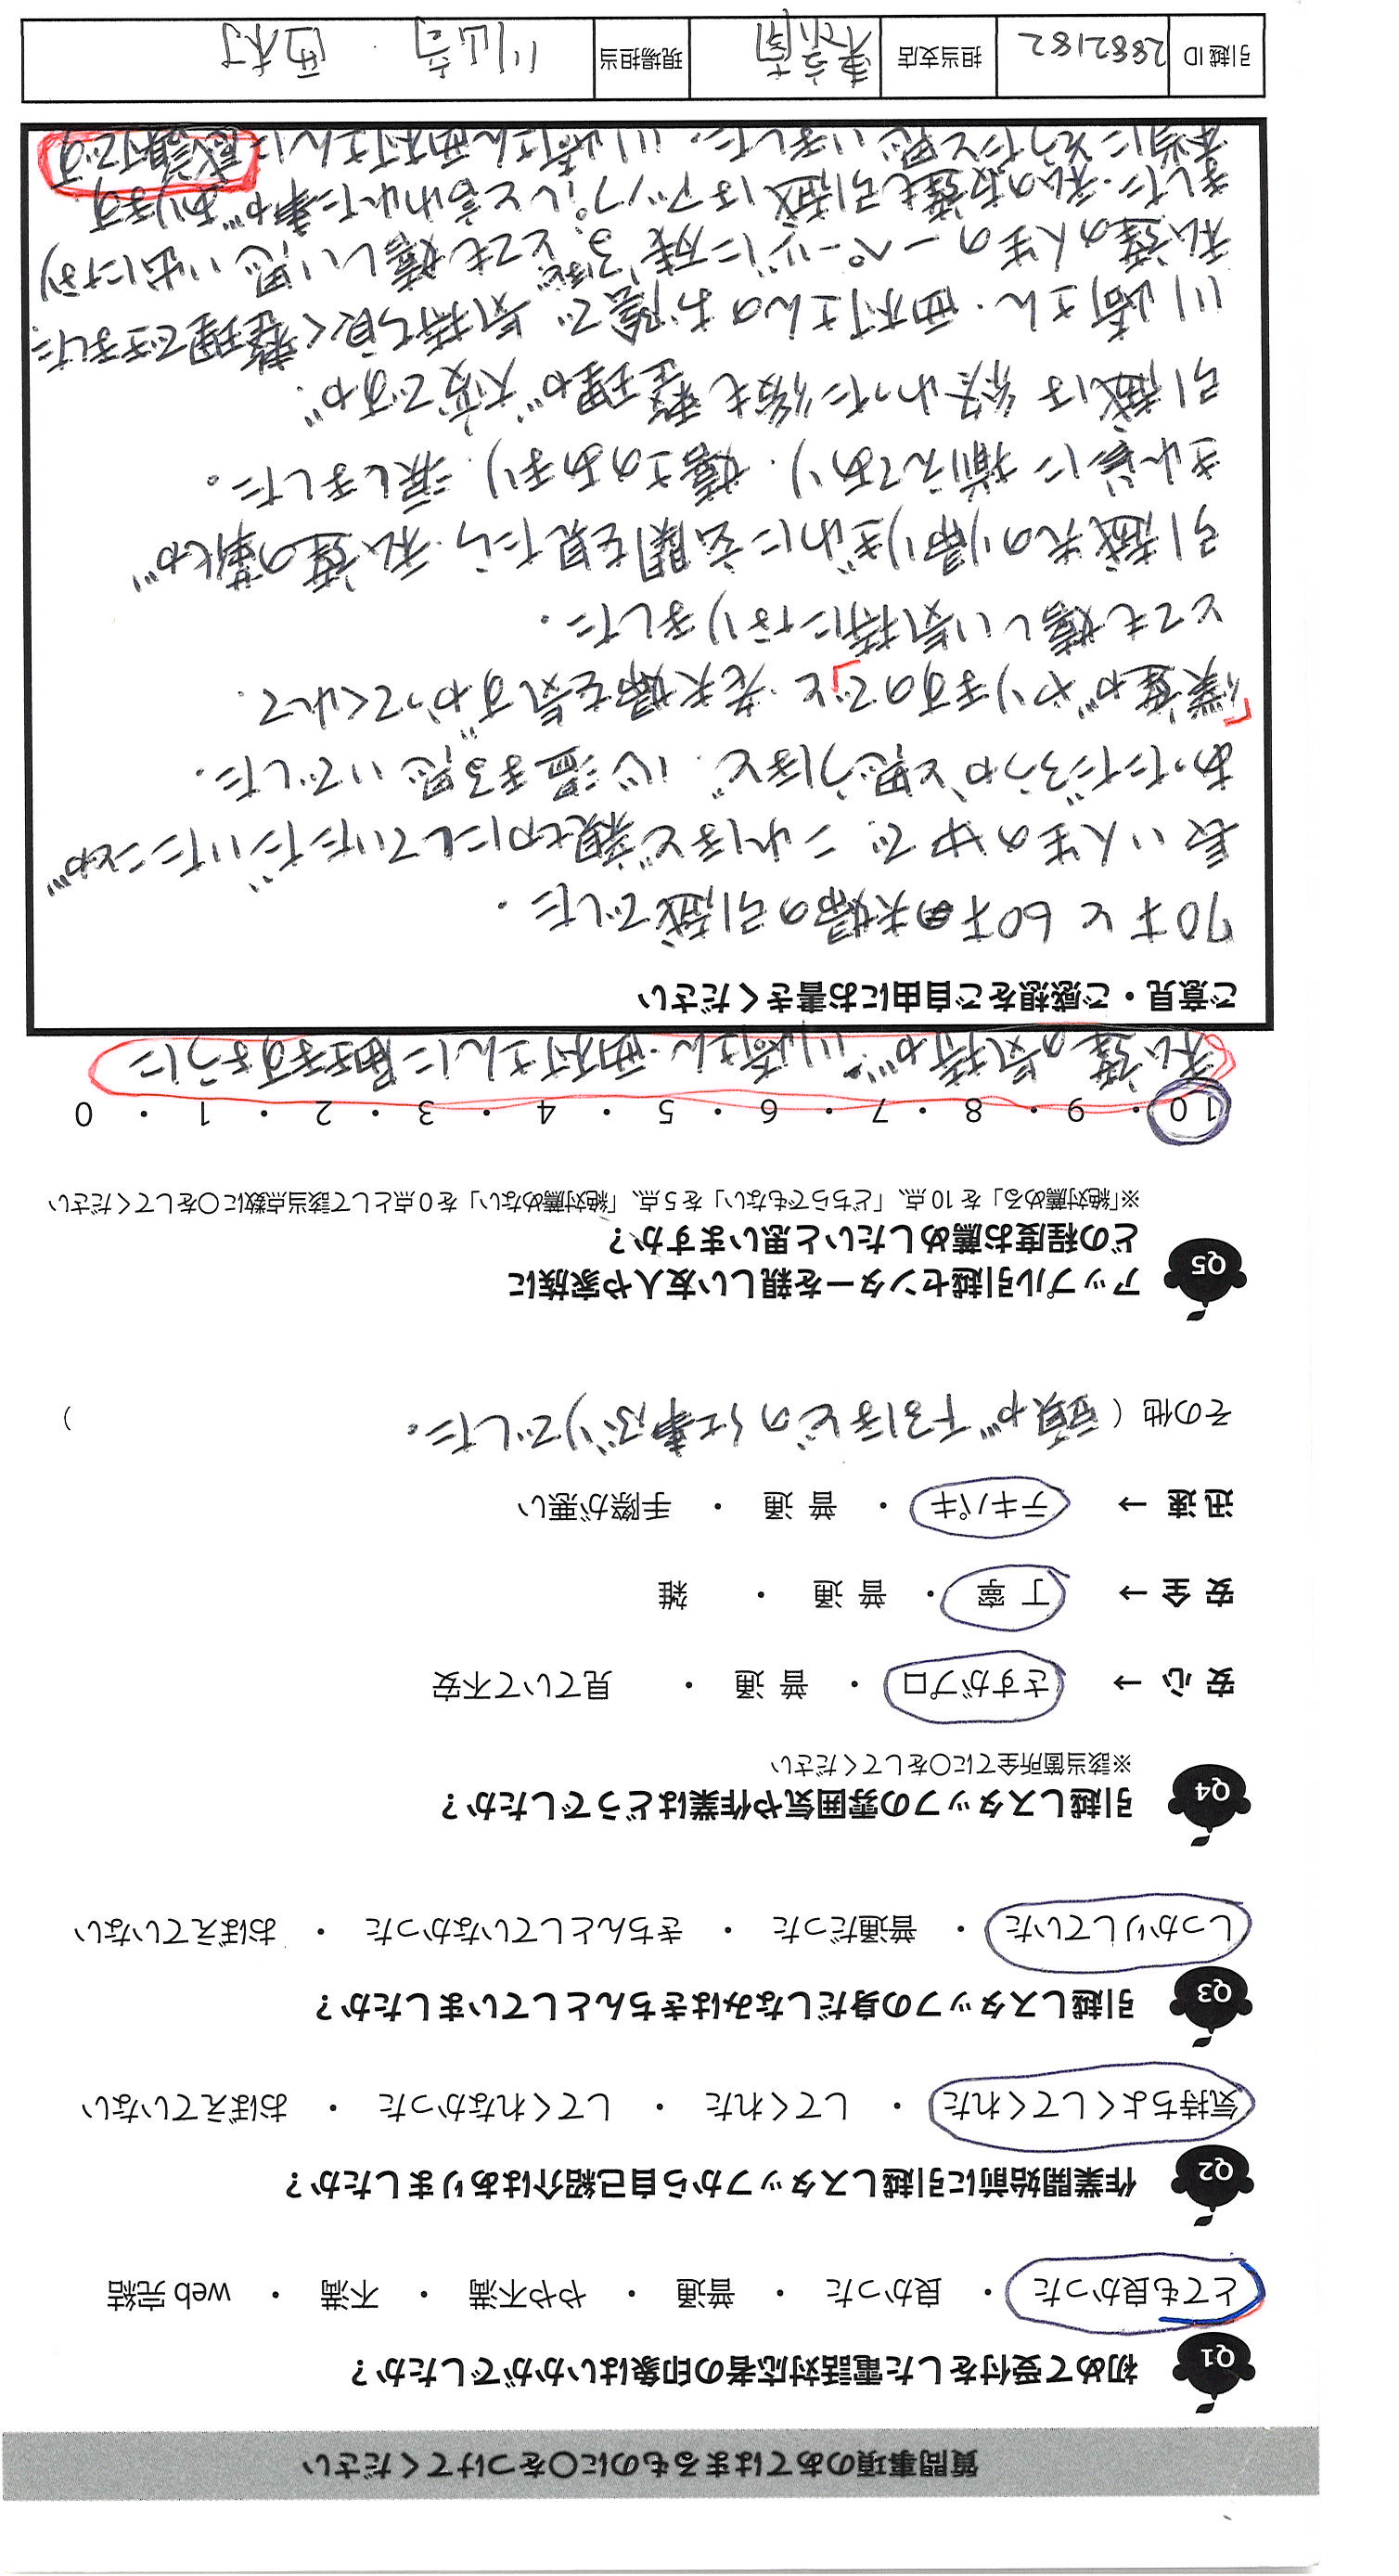 質問事項のあてはまるものに〇をつけてください
Q1 初めて受付をした電話対応者の印象はいかがでしたか？
とても良かった ・ 良かった ・ 普通 ・ やや不満 ・ 不満 ・ web 完結
Q2 作業開始前に引越しスタッフから自己紹介はありましたか？
気持ちよくしてくれた ・ してくれた ・ してくれなかった ・ おぼえていない
Q3 引越しスタッフの身だしなみはきちんとしていましたか？
しっかりしていた ・ 普通だった ・ きちんとしていなかった ・ おぼえていない
Q4 引越しスタッフの雰囲気や作業はどうでしたか？
※該当箇所全てに〇をしてください
安 心 → さすがプロ ・ 普 通 ・ 見ていて不安
安 全 → 丁 寧 ・ 普 通 ・ 雑
迅 速 → テキパキ ・ 普 通 ・ 手際が悪い
その他（ 頭が下るほどの仕事ぶりでした。 ）
Q5 アップル引越センターを親しい友人や家族に
どの程度お薦めしたいと思いますか？
※「絶対薦める」を 10 点、「どちらでもない」を 5 点、「絶対薦めない」を 0 点として該当点数に〇をしてください
10 ・ 9 ・ 8 ・ 7 ・ 6 ・ 5 ・ 4 ・ 3 ・ 2 ・ 1 ・ 0
私達の気持が川崎さん・西村さんに届きますように
ご意見・ご感想をご自由にお書きください
70才と60才の夫婦の引越でした．
長い人生の中で、これほど親切にしていただいたことが
あっただろうかと思うほど、心温まる思いでした．
「僕達がやりますので」と、老夫婦を気ずかってくれて、
とても嬉しい気持になりました．
引越先の帰りぎわに玄関を見たら、私達の靴が
きれいに揃えてあり、嬉さのあまり、涙しました。
引越は終わった後も整理が大変ですが、
川崎さん・西村さんのお陰で気持ち良く整理できました。
私達の人生の一ページに残るほど、とても嬉しい思い出になり
ました．私の友達も引越はアップルと言われた事があります．
本当にそうだと思いました．川崎さん西村さんに感謝です
引越 ID 2882182 担当支店 東京南 現場担当 川崎・西村